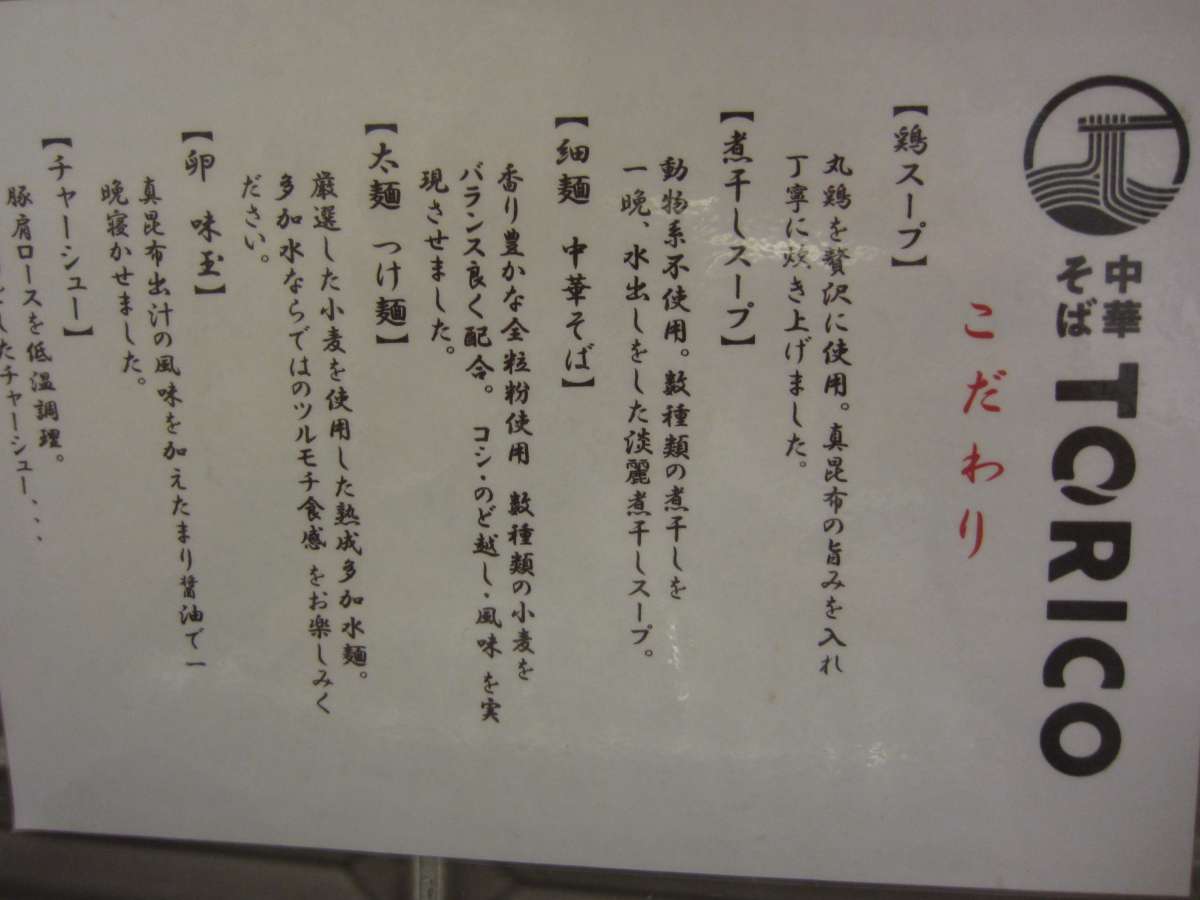 中華
そば
TORICO
こだわり
【鶏スープ】
丸鶏を贅沢に使用。真昆布の旨みを入れ
丁寧に炊き上げました。
【煮干しスープ】
動物系不使用。数種類の煮干しを
一晩、水出しをした淡麗煮干しスープ。
【細麺 中華そば】
香り豊かな全粒粉使用 数種類の小麦を
バランス良く配合。コシ・のど越し・風味を実
現させました。
【太麺 つけ麺】
厳選した小麦を使用した熟成多加水麺。
多加水ならではのツルモチ食感をお楽しみく
ださい。
【卵 味玉】
真昆布出汁の風味を加えたまり醤油で一
晩寝かせました。
【チャーシュー】
豚肩ロースを低温調理。
したチャーシュー、、、